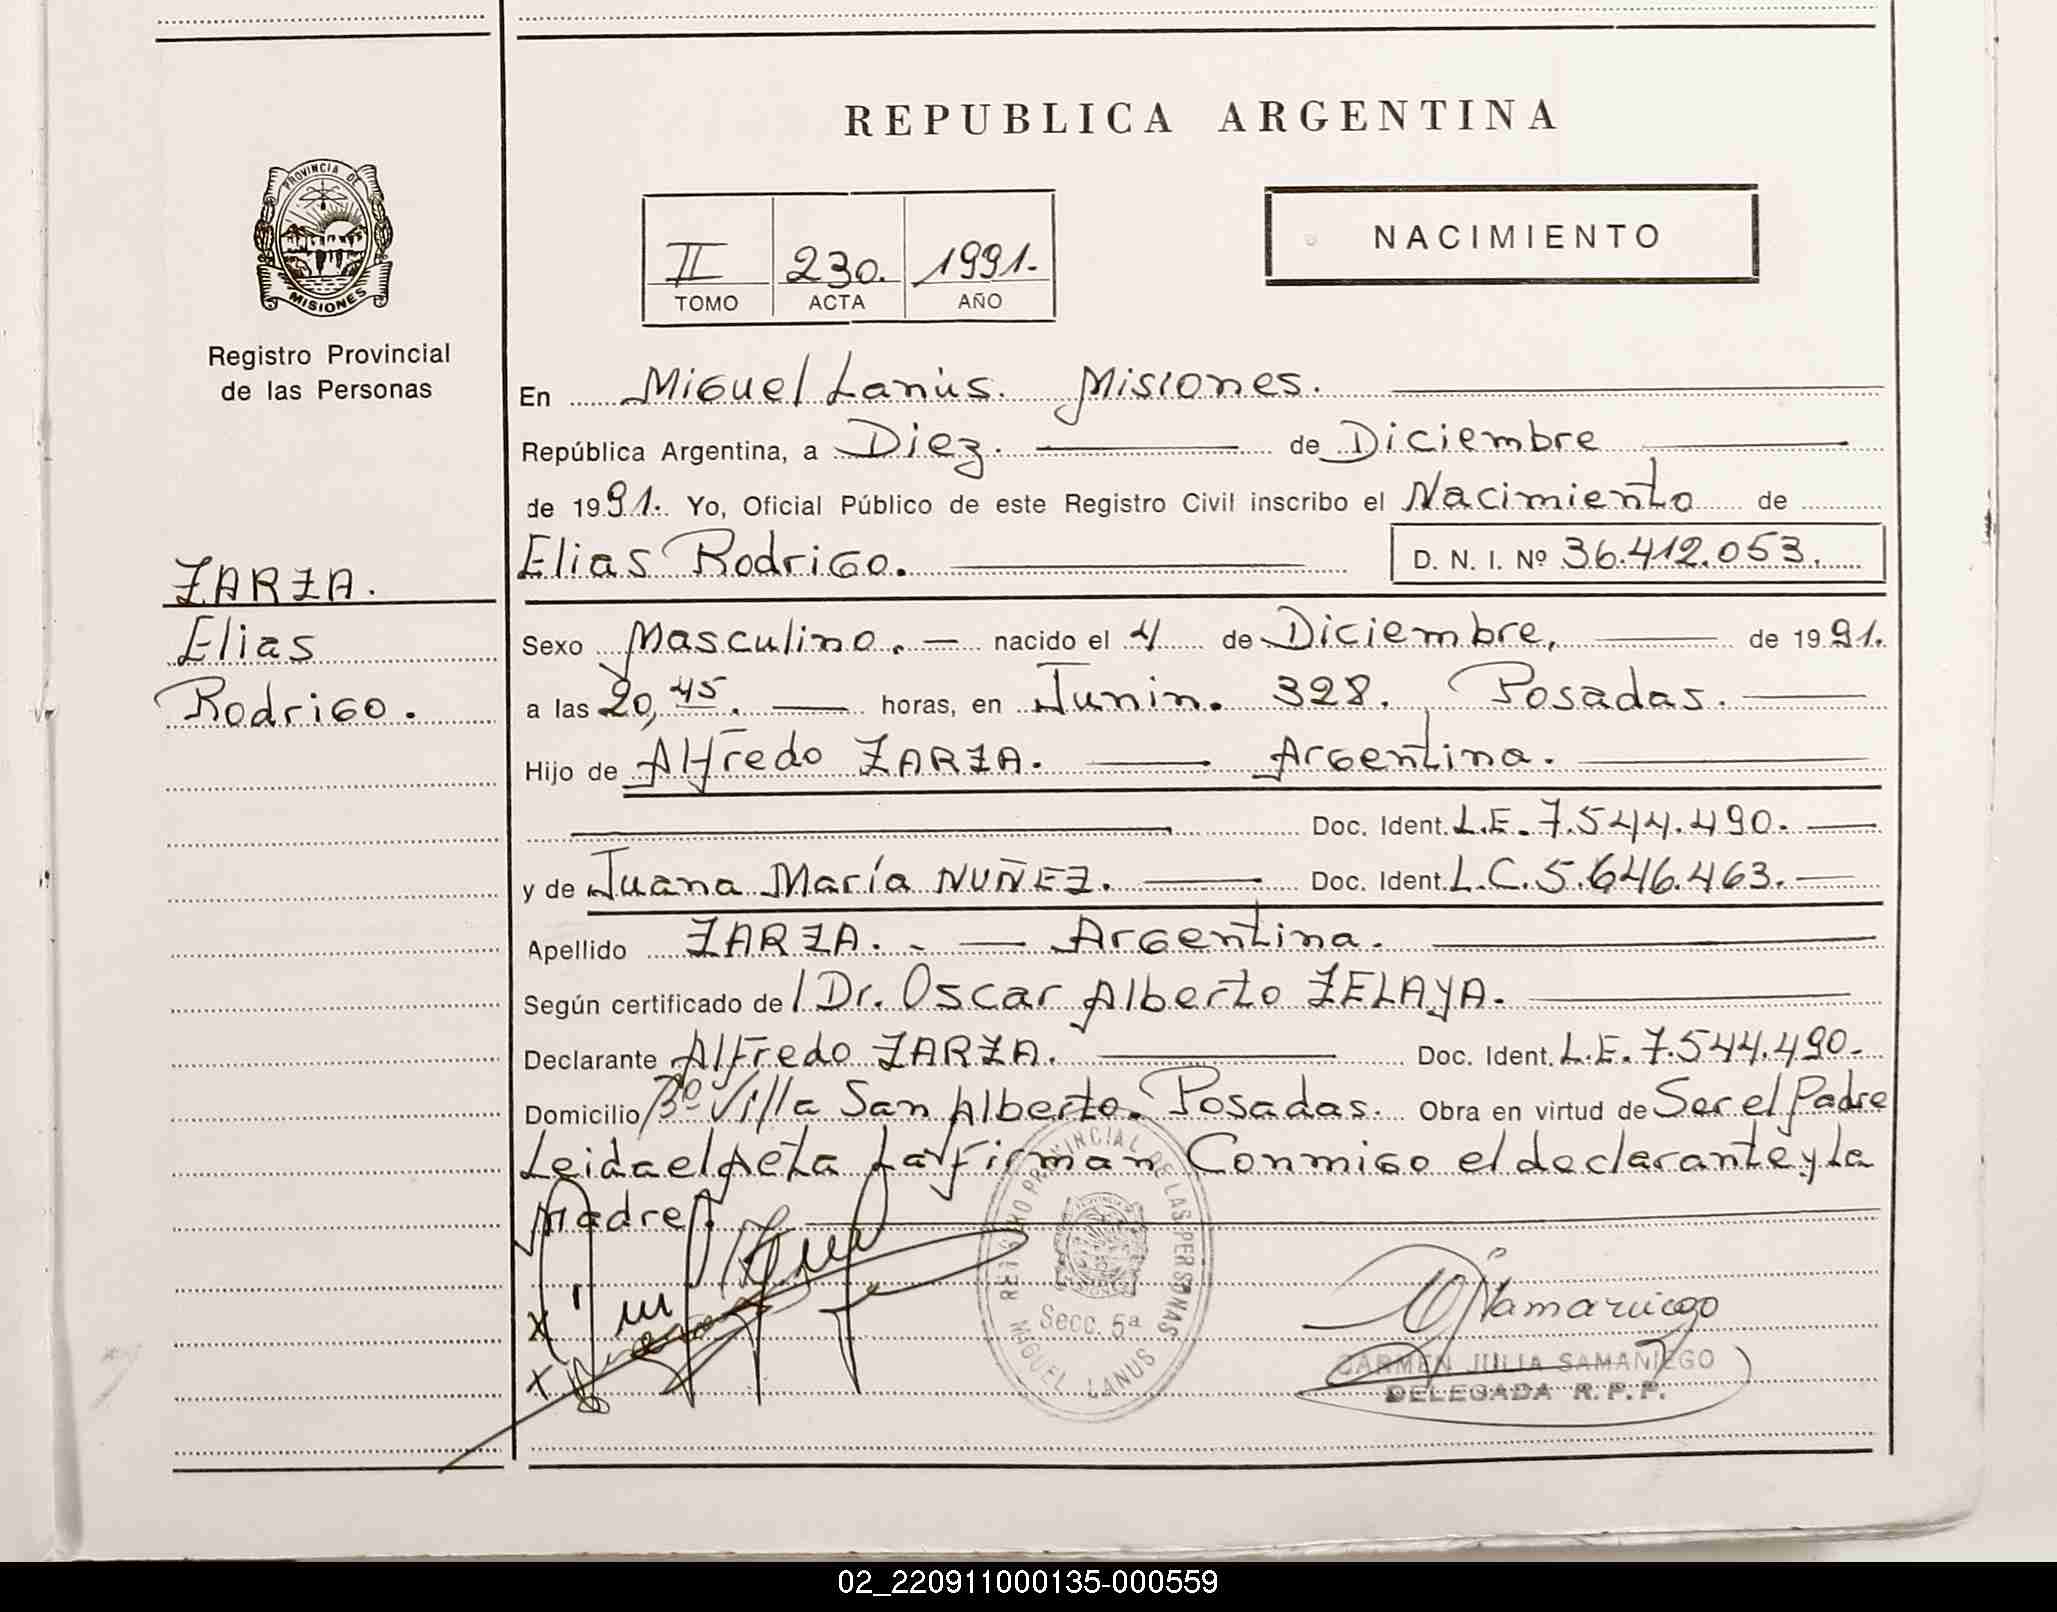 REPUBLICA ARGENTINA
PROVINCIA DE
MISIONES
Registro Provincial
de las Personas
ZARZA.
Elias
Rodrigo.
II 230. 1991.
TOMO ACTA AÑO
NACIMIENTO
En Miguel Lanús. Misiones.
República Argentina, a Diez. de Diciembre
de 1991. Yo, Oficial Público de este Registro Civil inscribo el Nacimiento de
Elias Rodrigo. D. N. I. Nº 36.412.053.
Sexo Masculino. nacido el 4 de Diciembre, de 1991.
a las 20,45. horas, en Junin. 328. Posadas.
Hijo de Alfredo ZARZA. Argentina.
Doc. Ident. L.E. 7.544.490.
y de Juana María NUÑEZ. Doc. Ident. L.C. 5.646.463.
Apellido ZARZA. Argentina.
Según certificado de Dr. Oscar Alberto ZELAYA.
Declarante Alfredo ZARZA. Doc. Ident. L.E. 7.544.490.
Domicilio Bº Villa San Alberto. Posadas. Obra en virtud de Ser el Padre
Leida el Acta La Firman Conmigo el declarante y La
Madre.
REGISTRO PROVINCIAL DE LAS PERSONAS
Secc. 5ª
MIGUEL LANUS
CARMEN JULIA SAMANIEGO
DELEGADA R. P. P.
02_220911000135-000559